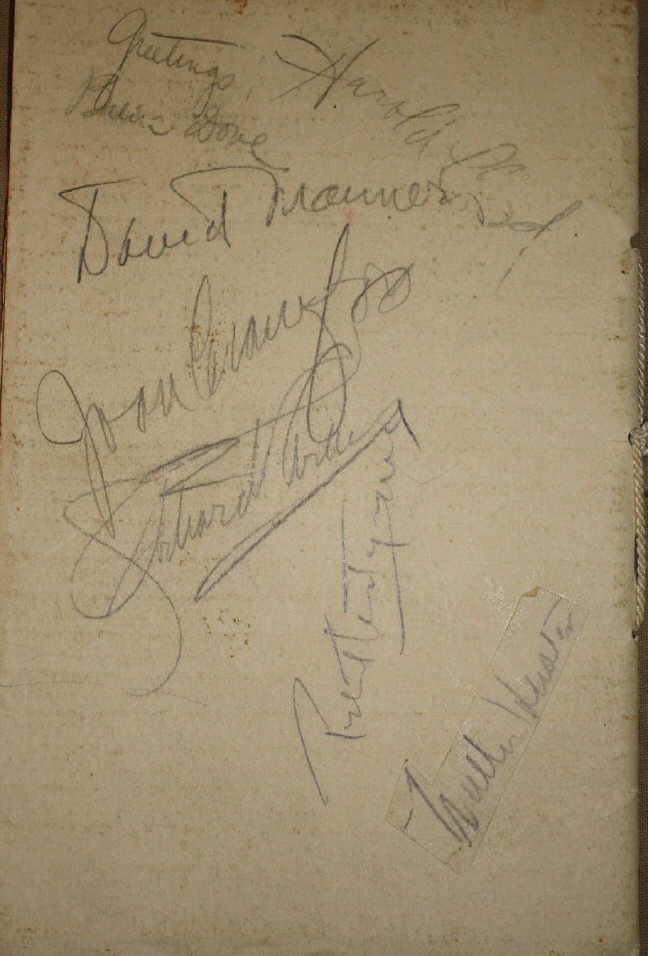 Greetings
Billie Dove
Harold Lloyd
David Manners
Joan Crawford
Richard
Walter Huston